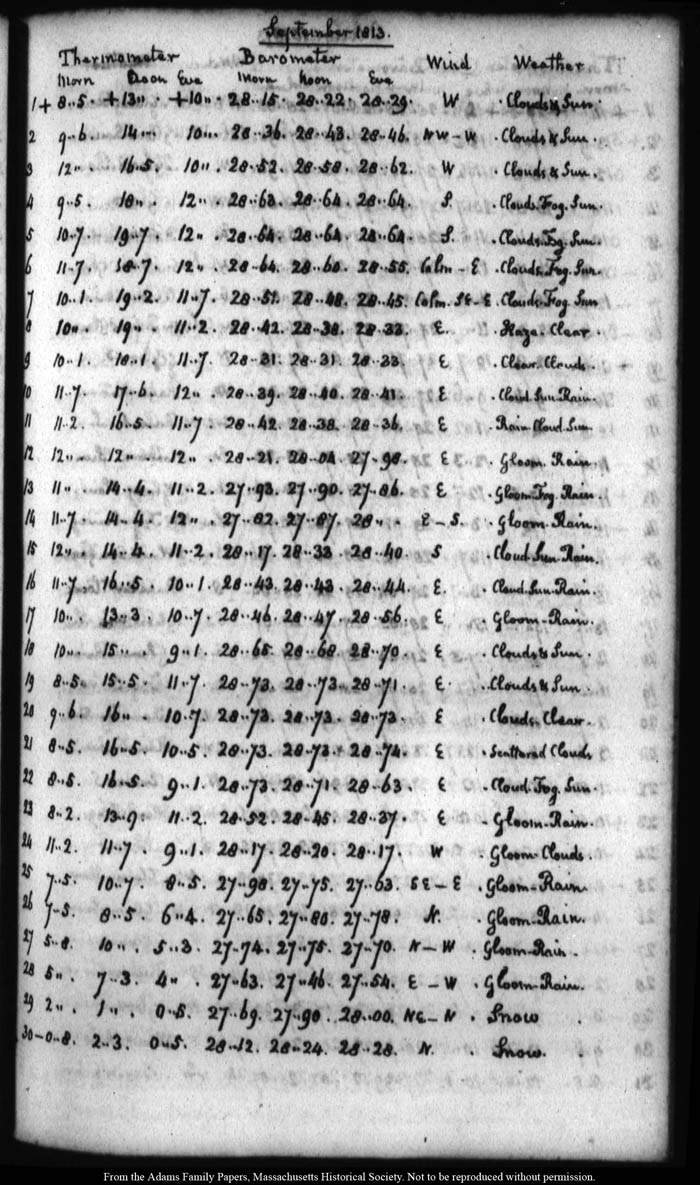 September 1813.
Thermometer Barometer Wind Weather
Morn Noon Eve Morn Noon Eve
1 + 8..5. +13„ +10„. 28..15. 28..22. 28..29. W . Clouds & Sun.
2 9..6. 14„. 10„. 28..36. 28..43. 28..46. NW - W . Clouds & Sun.
3 12„. 16..5. 10„. 28..52. 28..58. 28..62. W . Clouds & Sun.
4 9..5. 18„. 12„. 28..63. 28..64. 28..64. S. . Clouds. Fog. Sun.
5 10..7. 19..7. 12„. 28..64. 28..64. 28..64. S. . Clouds. Fog. Sun.
6 11..7. 18..7. 12„. 28..64. 28..60. 28..55. Calm - E . Clouds. Fog. Sun.
7 10..1. 19..2. 11..7. 28..51. 28..48. 28..45. Calm. SE - E . Clouds. Fog. Sun
8 10„. 19„. 11..2. 28..42. 28..38. 28..33. E. . Haze. Clear.
9 10..1. 18..1. 11..7. 28..31. 28..31. 28..33. E . Clear. Clouds.
10 11..7. 17..6. 12„. 28..39. 28..40. 28..41. E . Cloud. Sun. Rain.
11 11..2. 16..5. 11..7. 28..42. 28..38. 28..36. E . Rain. Cloud. Sun.
12 12„. 12„. 12„. 28..21. 28..04. 27..98. E . Gloom. Rain.
13 11„. 14..4. 11..2. 27..93. 27..90. 27..86. E . Gloom. Fog. Rain.
14 11..7. 14..4. 12„. 27..82. 27..87. 28„. E - S. . Gloom. Rain.
15 12„. 14..4. 11..2. 28..17. 28..33. 28..40. S . Cloud. Sun. Rain.
16 11..7. 16..5. 10..1. 28..43. 28..43. 28..44. E. . Cloud. Sun. Rain.
17 10„. 13..3. 10..7. 28..46. 28..47. 28..56. E . Gloom-Rain.
18 10„. 15„. 9..1. 28..65. 28..68. 28..70. E . Clouds & Sun.
19 8..5. 15..5. 11..7. 28..73. 28..73. 28..71. E . Clouds & Sun.
20 9..6. 16„. 10..7. 28..73. 28..73. 28..73. E . Clouds. Clear.
21 8..5. 16..5. 10..5. 28..73. 28..73. 28..74. E . Scattered Clouds
22 8..5. 16..5. 9..1. 28..73. 28..71. 28..63. E . Cloud. Fog. Sun.
23 8..2. 13..9. 11..2. 28..52. 28..45. 28..37. E . Gloom-Rain.
24 11..2. 11..7. 9..1. 28..17. 28..20. 28..17. W . Gloom-Clouds.
25 7..5. 10..7. 8..5. 27..98. 27..75. 27..63. SE - E . Gloom-Rain.
26 7..5. 8..5. 6..4. 27..65. 27..80. 27..78. N. . Gloom-Rain.
27 5..8. 10„. 5..3. 27..74. 27..75. 27..70. N - W . Gloom-Rain.
28 5„. 7..3. 4„. 27..63. 27..46. 27..54. E - W . Gloom-Rain.
29 2„. 1„. 0..5. 27..69. 27..90. 28..00. NE - N . Snow .
30 - 0..8. 2..3. 0..5. 28..12. 28..24. 28..28. N. . Snow. .
From the Adams Family Papers, Massachusetts Historical Society. Not to be reproduced without permission.